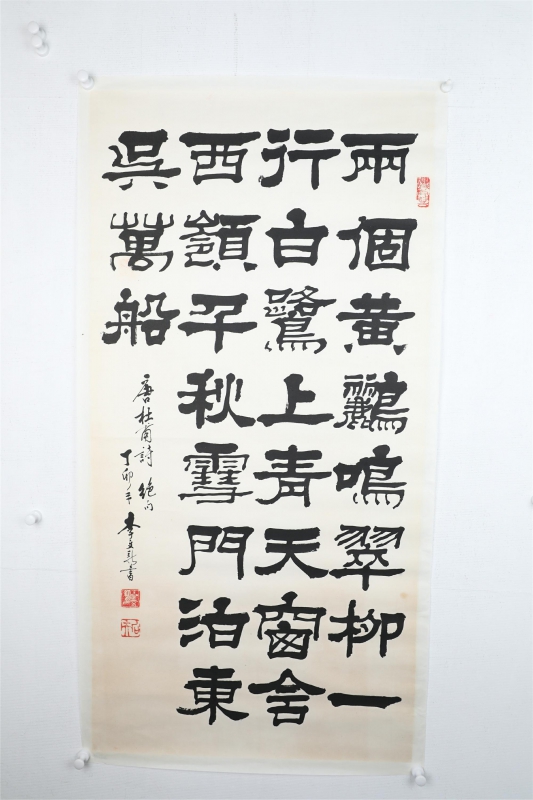 兩個黃鸝鳴翠柳一
行白鷺上青天窗含
西嶺千秋雪門泊東
吳萬船
唐杜甫詩 絕句
丁卯 李文書